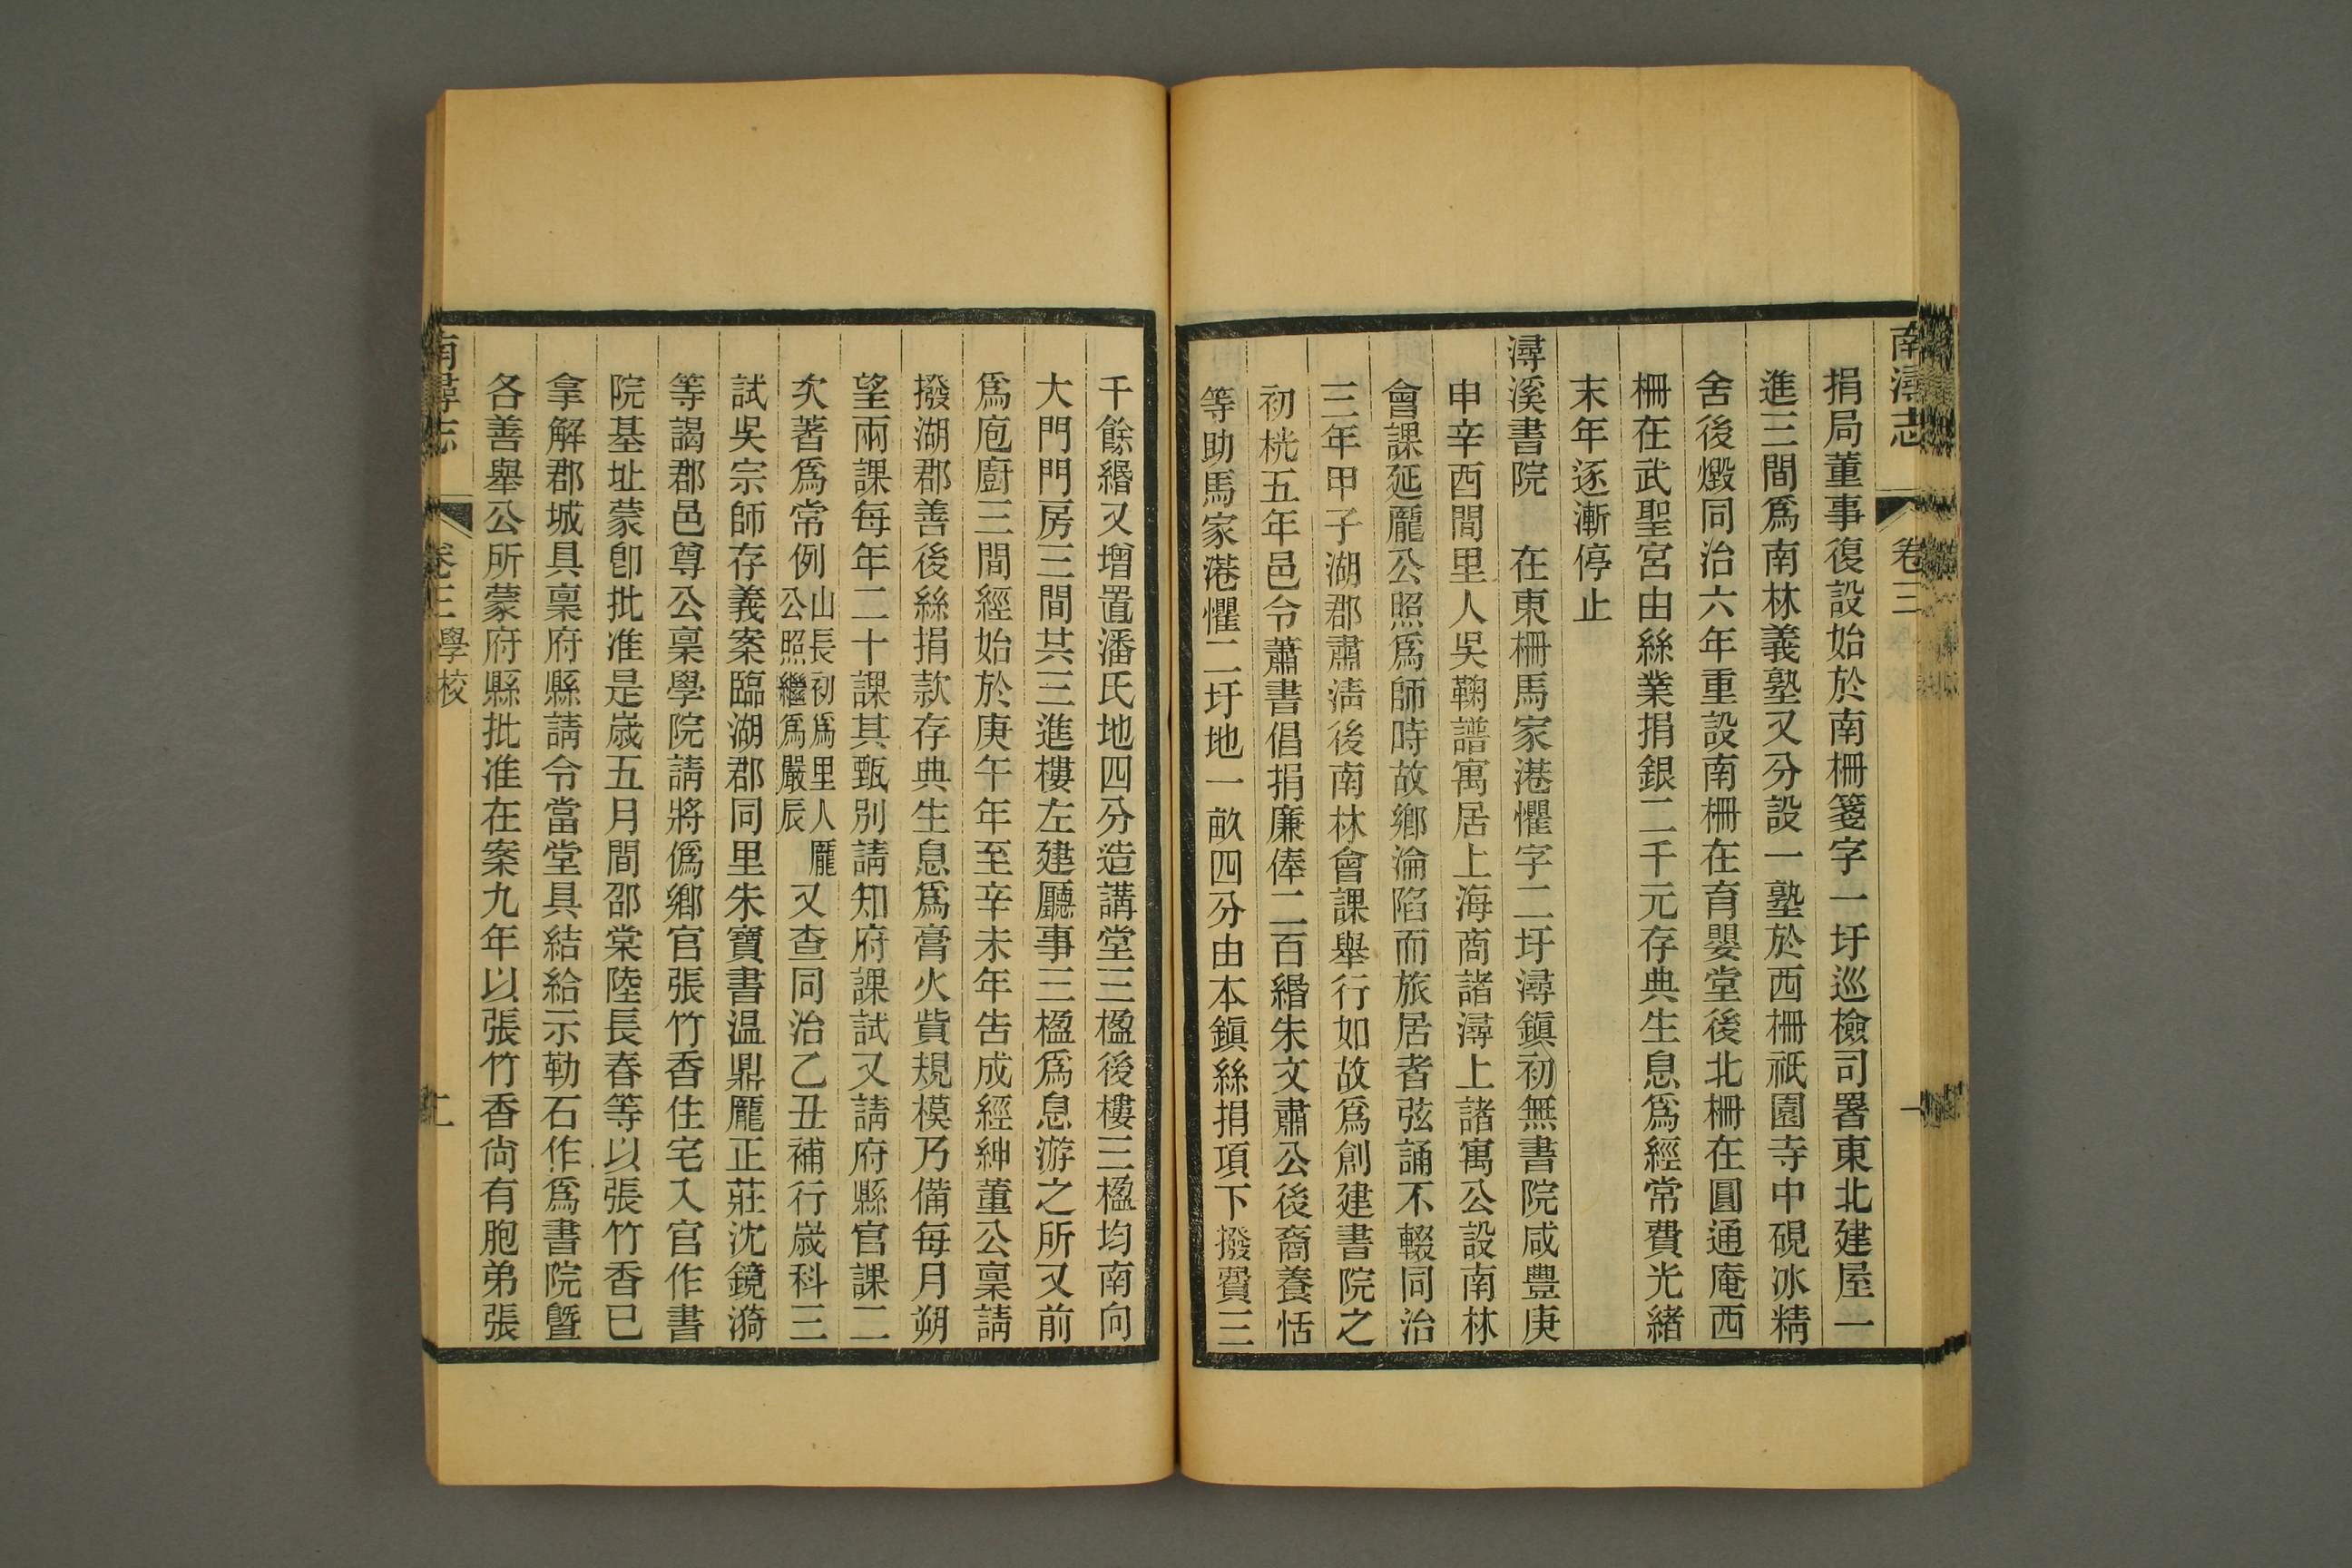 南潯志
卷三
捐局董事復設始於南柵箋字一圩巡檢司署東北建屋一
進三間爲南林義塾又分設一塾於西柵祇園寺中硯冰精
舍後燬同治六年重設南柵在育嬰堂後北柵在圓通庵西
柵在武聖宮由絲業捐銀二千元存典生息爲經常費光緒
末年逐漸停止
潯溪書院　在東柵馬家港懼字二圩潯鎭初無書院咸豐庚
申辛酉間里人吳鞠譜寓居上海商諸潯上諸寓公設南林
會課延龐公照爲師時故鄉淪陷而旅居者弦誦不輟同治
三年甲子湖郡肅淸後南林會課舉行如故爲創建書院之
初桄五年邑令蕭書倡捐廉俸二百緡朱文肅公後裔養恬
等助馬家港懼二圩地一畝四分由本鎭絲捐項下撥費三
千餘緡又增置潘氏地四分造講堂三楹後樓三楹均南向
大門門房三間共三進樓左建廳事三楹爲息游之所又前
爲庖廚三間經始於庚午年至辛未年告成經紳董公稟請
撥湖郡善後絲捐款存典生息爲膏火貲規模乃備每月朔
望兩課每年二十課其甄別請知府課試又請府縣官課二
次著爲常例山長初爲里人龐公照繼爲嚴辰又查同治乙丑補行歲科三
試吳宗師存義案臨湖郡同里朱寶書温鼎龐正莊沈鏡漪
等謁郡邑尊公稟學院請將僞鄉官張竹香住宅入官作書
院基址蒙卽批准是歲五月間邵棠陸長春等以張竹香已
拿解郡城具稟府縣請令當堂具結給示勒石作爲書院曁
各善舉公所蒙府縣批准在案九年以張竹香尙有胞弟張
南潯志
卷三　學校